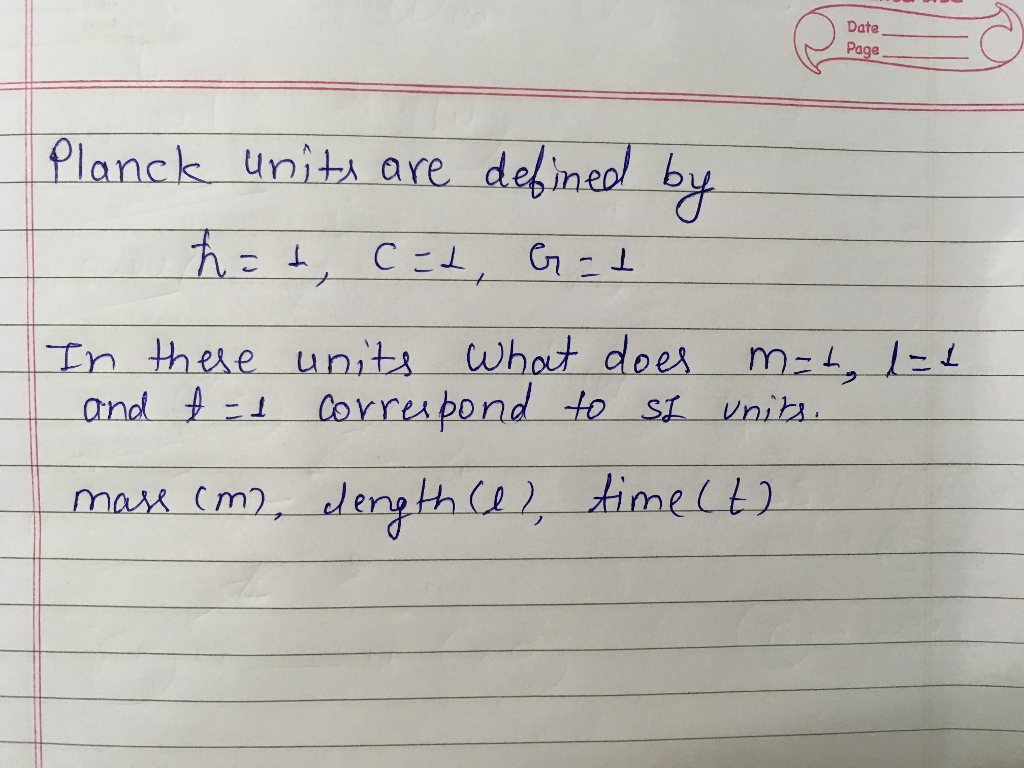 Date
Page
Planck units are defined by
ħ = 1, C = 1, G = 1
In these units what does m=1, l=1
and t=1 correspond to SI units.
mass (m), length (l), time (t)